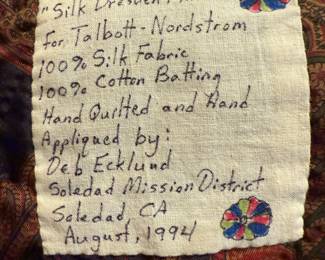 "Silk Dresden
for Talbott-Nordstrom
100% Silk Fabric
100% Cotton Batting
Hand Quilted and Hand
Appliqued by:
Deb Ecklund
Soledad Mission District
Soledad, CA
August, 1994